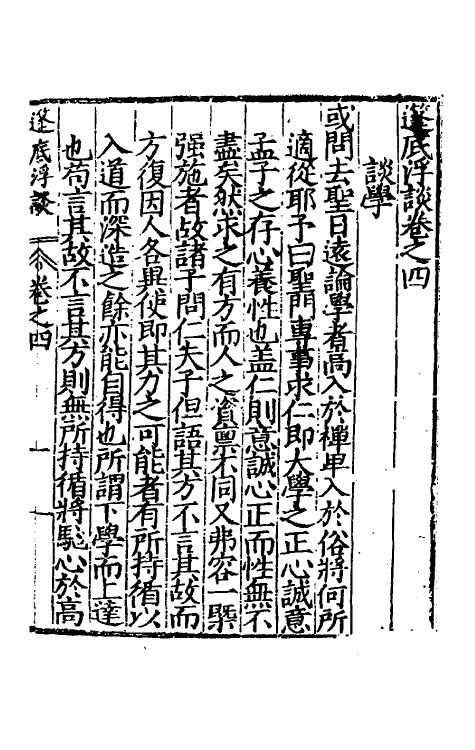 篷底浮談卷之四
談學
或問去聖日遠論學者高入於禪卑入於俗將何所
適從耶予曰聖門專事求仁即大學之正心誠意
孟子之存心養性也盖仁則意誠心正而性無不
盡矣然求之有方而人之資禀不同又弗容一槩
强施者故諸子問仁夫子但語其方不言其故而
方復因人各異使即其力之可能者有所持循以
入道而深造之餘亦能自得也所謂下學而上達
也苟言其故不言其方則無所持循將馳心於高
篷底浮談 卷之四 一